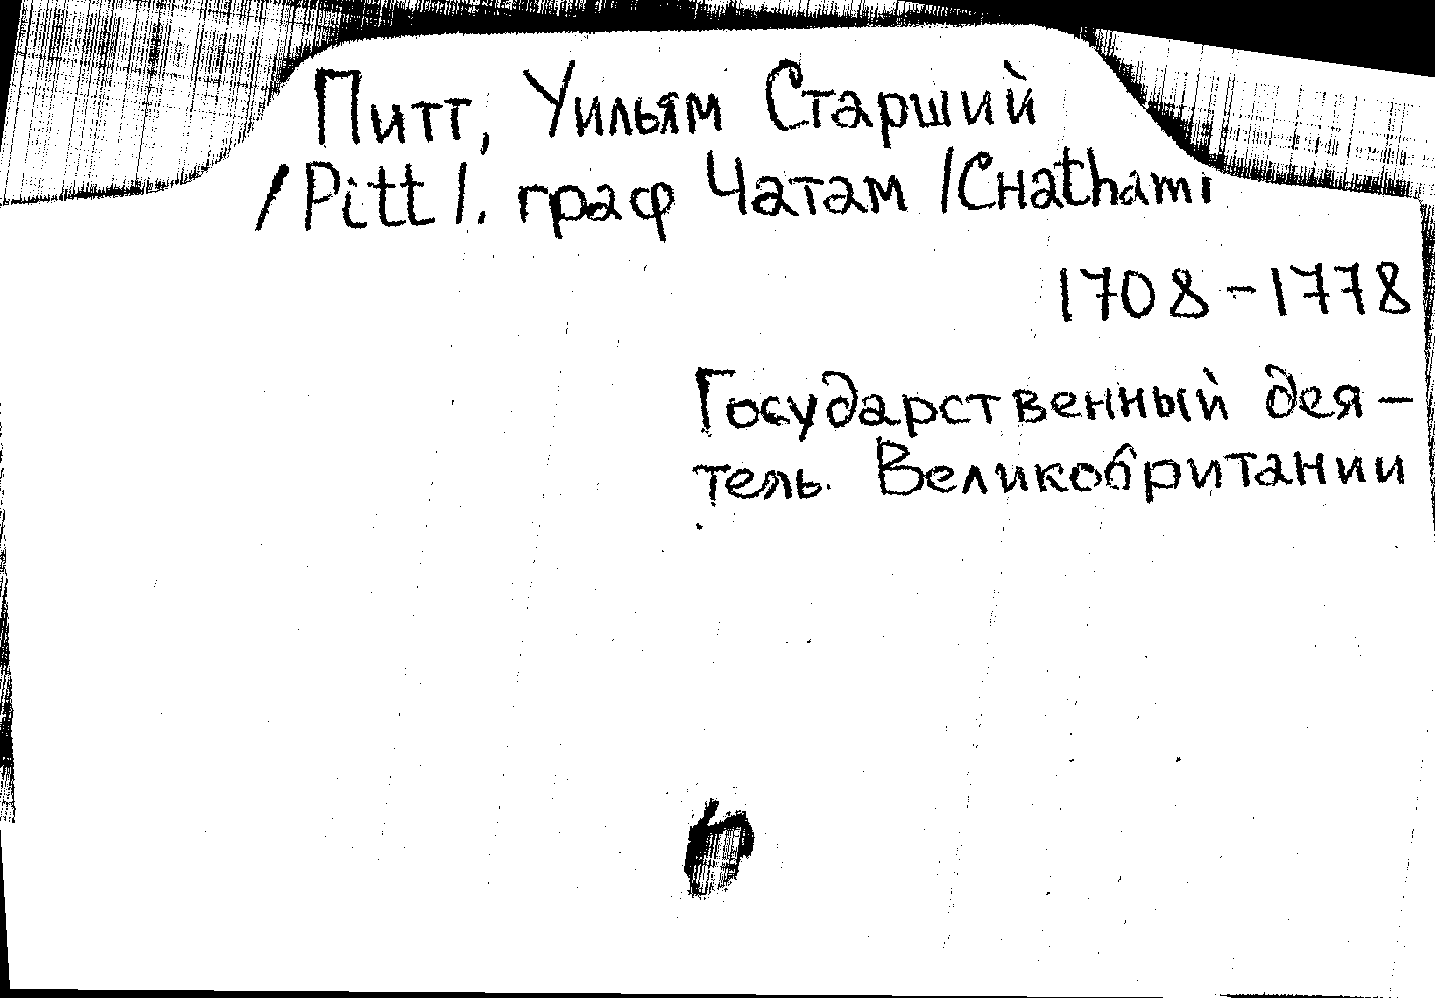 Питт, Уильям Старший
/Pitt/. граф Чатам /Chatham/
1708-1778
Государственный дея-
тель Великобритании